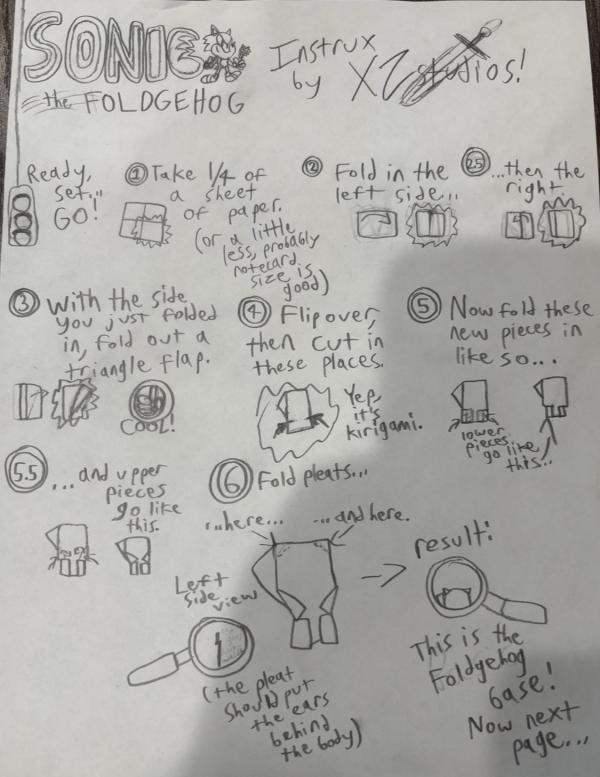 SONIC
the FOLDGEHOG
Instrux
by XZ studios!
Ready,
set...
GO!
① Take 1/4 of
a sheet
of paper.
(or a little
less, probably
notecard
size is
good)
② Fold in the
left side...
2.5 ...then the
right.
③ With the side
you just folded
in, fold out a
triangle flap.
COOL!
④ Flip over,
then cut in
these places.
Yep,
it's
kirigami.
⑤ Now fold these
new pieces in
like so...
lower
pieces
go like
this...
5.5 ...and upper
pieces
go like
this.
⑥ Fold pleats...
...here...
...and here.
Left
side
view
(the pleat
should put
the ears
behind
the body)
result:
This is the
Foldgehog
base!
Now next
page...